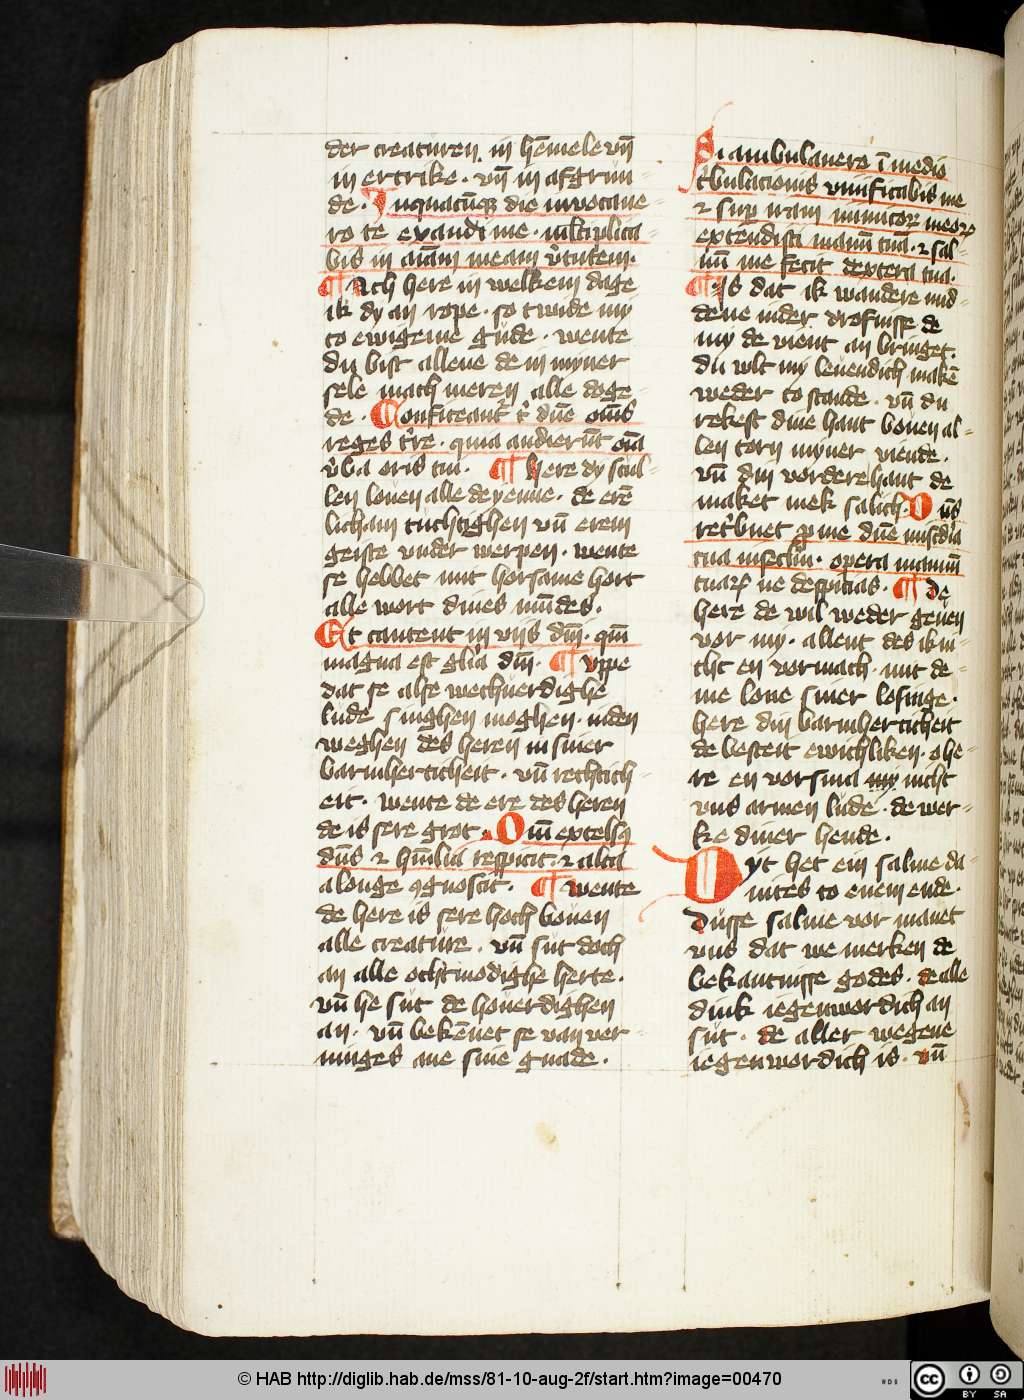 der creaturen in hēmele vn̄
in ertrike · vn̄ in afgrun-
de · Inquacūqꝫ die invocave-
ro te exaudi me · multiplica-
bis in aīam meam v̓tutem·
¶ Och here in welkem daghe
ik dy an rope · so twide my
to ewigeme gude · wente
du bist allene de in myner
sele mach meren alle doge-
de · Confiteant̃ t̓ dn̄e om̄s
reges t̓re · quia audierūt om̄ia
v̓ba oris tui · ¶ Here dy scul-
len loven alle de yenne · de erē
licham tuchtighen vn̄ erem
geiste vnder werpen · wente
se hebbet mit horsame hort
alle wort dines mūdes ·
Et cantent in viis dn̄i · qm̄
magna est gl̄ia dn̄i · ¶ Vppe
dat se alse wechverdighe
lude singhen moghen · in den
weghen des heren in siner
barmherticheit · vn̄ rechtich-
eit · wente de ere des heren
de is sere grot · Qm̄ excelsꝯ
dn̄s ⁊ hūilia respicit · ⁊ alta
a longe ꝯgnoscit · ¶ Wente
de here is sere hoch boven
alle creature · vn̄ sut doch
an alle othmodighe herte ·
vn̄ he sut de hoverdighen
an · vn̄ bekēnet se van ver-
ninges ane sine gnade ·
Si ambulavero ī medio
t̓bulacionis vivificabis me
⁊ sup̱ iram inimicoꝝ meoꝝ
extendisti manū tuā · ⁊ sal-
uū me fecit dextera tua·
¶ Is dat ik wandere mid-
dene in der drofnisse de
my de vient an bringet·
du wlt my levendich makē
weder to stande · vn̄ du
rekest dine hant boven al-
len torn myner viende ·
vn̄ din vorderehant de
maket mek salich· Dn̄s
ret̓buet ꝓ me dn̄e mīcdia
tua in seclm̄ · opera manuū
tuaꝝ ne despicias · ¶ De
here de wil weder geven
vor my · allent des ik ni-
cht en vormach · mit de-
me love siner losinge ·
here din barmherticheit
de besteit ewichliken · o he-
re en vorsma my nicht
vns armen lude · de wer-
ke diner hende ·
Dyt het ein salme da-
uites to enem ende ·
Dusse salme vor manet
vns dat we merken de
bekantnisse godes · de alle
dink iegenwordich an
sut · de aller wegene
iegenwordich is · vn̄
© HAB http://diglib.hab.de/mss/81-10-aug-2f/start.htm?image=00470
CC BY SA